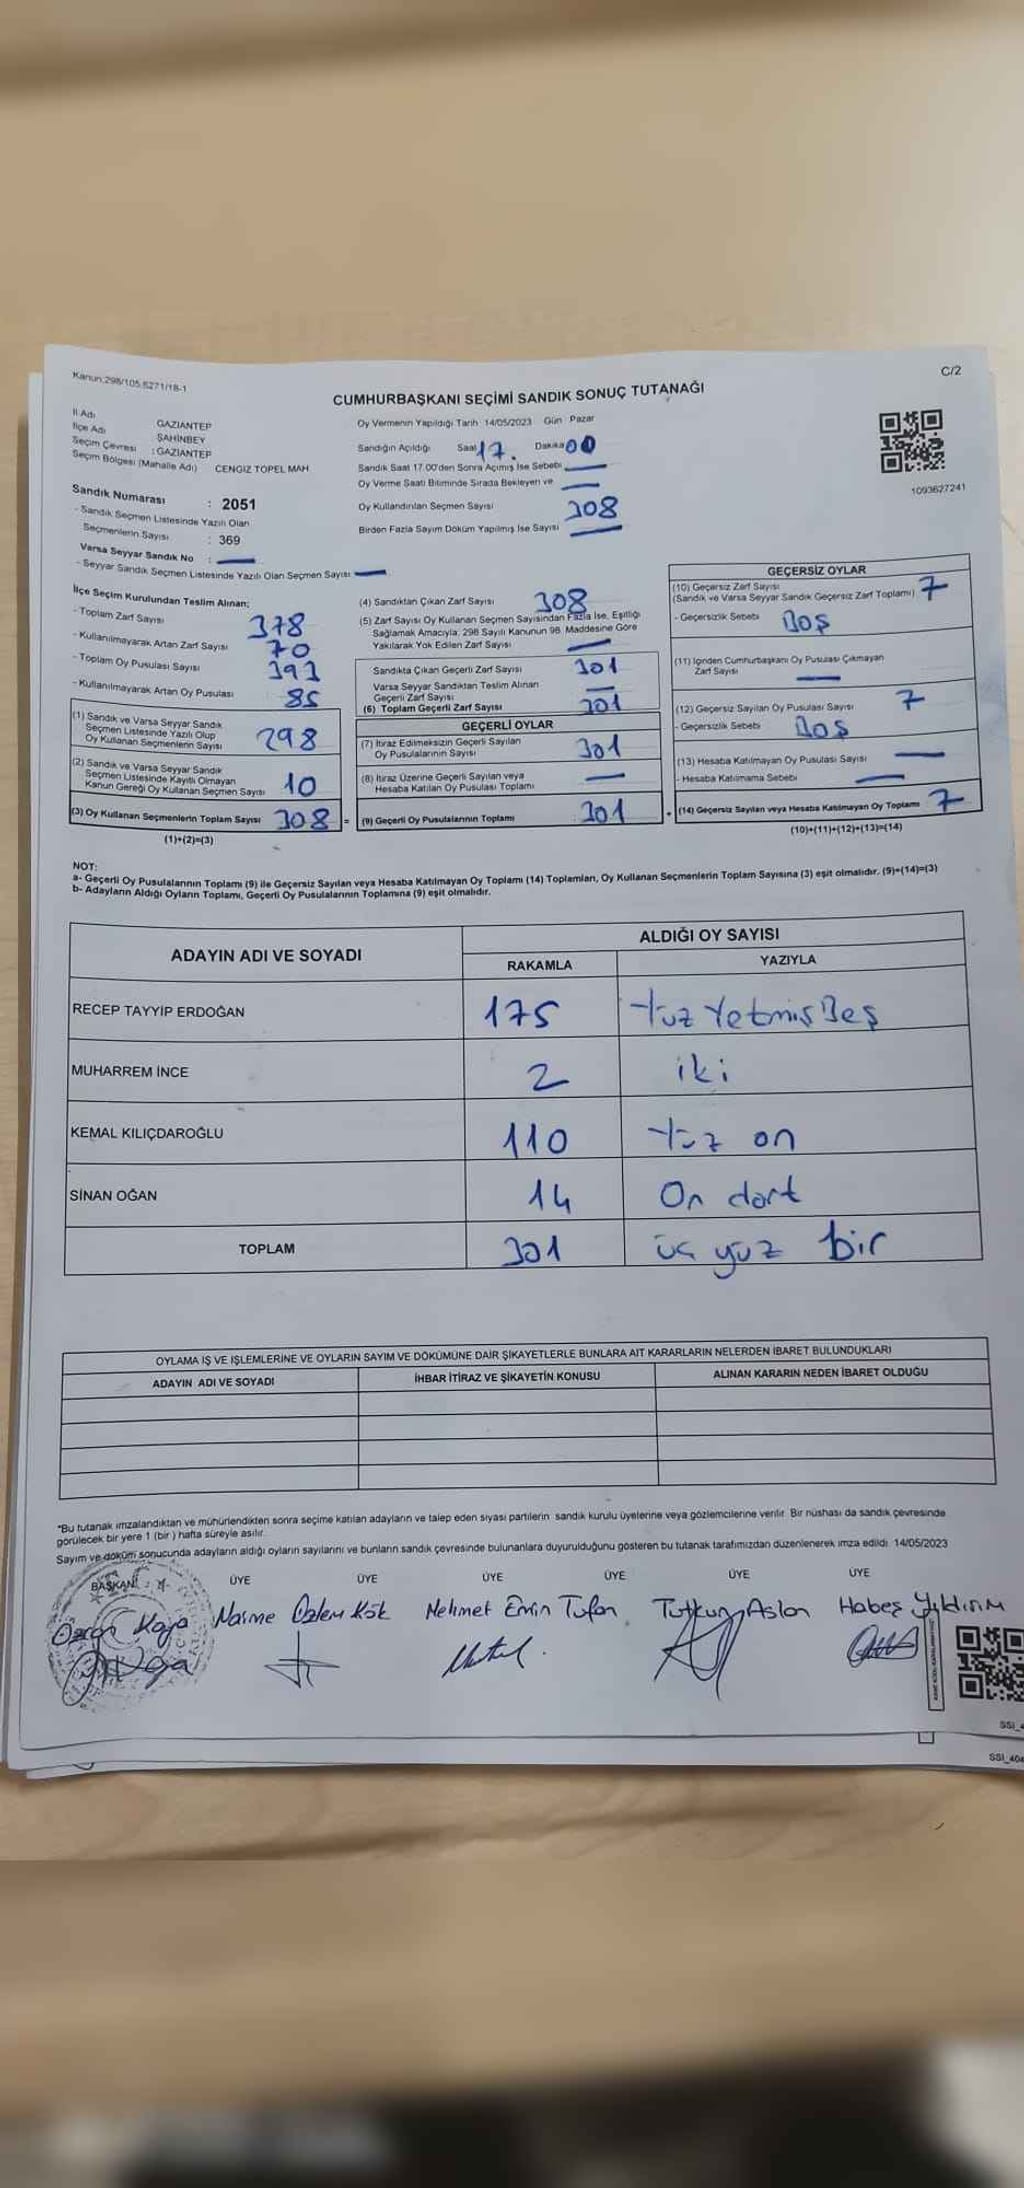 Kanun:298/105,6271/18-1
C/2
CUMHURBAŞKANI SEÇİMİ SANDIK SONUÇ TUTANAĞI
İl Adı GAZİANTEP
İlçe Adı ŞAHİNBEY
Seçim Çevresi : GAZİANTEP
Seçim Bölgesi (Mahalle Adı) CENGİZ TOPEL MAH
Sandık Numarası : 2051
- Sandık Seçmen Listesinde Yazılı Olan
Seçmenlerin Sayısı : 369
Varsa Seyyar Sandık No : —
- Seyyar Sandık Seçmen Listesinde Yazılı Olan Seçmen Sayısı —
Oy Vermenin Yapıldığı Tarih 14/05/2023 Gün Pazar
Sandığın Açıldığı Saat 17. Dakika 00
Sandık Saat 17.00'den Sonra Açımış İse Sebebi —
Oy Verme Saati Bitiminde Sırada Bekleyen ve —
Oy Kullandırılan Seçmen Sayısı 308
Birden Fazla Sayım Döküm Yapılmış İse Sayısı —
1093627241
İlçe Seçim Kurulundan Teslim Alınan;
- Toplam Zarf Sayısı 378
- Kullanılmayarak Artan Zarf Sayısı 70
- Toplam Oy Pusulası Sayısı 393
- Kullanılmayarak Artan Oy Pusulası 85
(1) Sandık ve Varsa Seyyar Sandık
Seçmen Listesinde Yazılı Olup
Oy Kullanan Seçmenlerin Sayısı 298
(2) Sandık ve Varsa Seyyar Sandık
Seçmen Listesinde Kayıtlı Olmayan
Kanun Gereği Oy Kullanan Seçmen Sayısı 10
(3) Oy Kullanan Seçmenlerin Toplam Sayısı 308 =
(1)+(2)=(3)
(4) Sandıktan Çıkan Zarf Sayısı 308
(5) Zarf Sayısı Oy Kullanan Seçmen Sayısından Fazla İse, Eşitliği
Sağlamak Amacıyla; 298 Sayılı Kanunun 98. Maddesine Göre
Yakılarak Yok Edilen Zarf Sayısı —
Sandıkta Çıkan Geçerli Zarf Sayısı 301
Varsa Seyyar Sandıktan Teslim Alınan
Geçerli Zarf Sayısı —
(6) Toplam Geçerli Zarf Sayısı 301
GEÇERLİ OYLAR
(7) İtiraz Edilmeksizin Geçerli Sayılan
Oy Pusulalarının Sayısı 301
(8) İtiraz Üzerine Geçerli Sayılan veya
Hesaba Katılan Oy Pusulası Toplamı —
(9) Geçerli Oy Pusulalarının Toplamı 301 +
GEÇERSİZ OYLAR
(10) Geçersiz Zarf Sayısı 7
(Sandık ve Varsa Seyyar Sandık Geçersiz Zarf Toplamı)
- Geçersizlik Sebebi Boş
(11) İçinden Cumhurbaşkanı Oy Pusulası Çıkmayan
Zarf Sayısı —
(12) Geçersiz Sayılan Oy Pusulası Sayısı 7
- Geçersizlik Sebebi Boş
(13) Hesaba Katılmayan Oy Pusulası Sayısı —
- Hesaba Katılmama Sebebi —
(14) Geçersiz Sayılan veya Hesaba Katılmayan Oy Toplamı 7
(10)+(11)+(12)+(13)=(14)
NOT:
a- Geçerli Oy Pusulalarının Toplamı (9) ile Geçersiz Sayılan veya Hesaba Katılmayan Oy Toplamı (14) Toplamları, Oy Kullanan Seçmenlerin Toplam Sayısına (3) eşit olmalıdır. (9)+(14)=(3)
b- Adayların Aldığı Oyların Toplamı, Geçerli Oy Pusulalarının Toplamına (9) eşit olmalıdır.
ADAYIN ADI VE SOYADI ALDIĞI OY SAYISI
RAKAMLA YAZIYLA
RECEP TAYYİP ERDOĞAN 175 Yüz Yetmiş Beş
MUHARREM İNCE 2 iki
KEMAL KILIÇDAROĞLU 110 Yüz on
SİNAN OĞAN 14 On dört
TOPLAM 301 üç yüz bir
OYLAMA İŞ VE İŞLEMLERİNE VE OYLARIN SAYIM VE DÖKÜMÜNE DAİR ŞİKAYETLERLE BUNLARA AİT KARARLARIN NELERDEN İBARET BULUNDUKLARI
ADAYIN ADI VE SOYADI İHBAR İTİRAZ VE ŞİKAYETİN KONUSU ALINAN KARARIN NEDEN İBARET OLDUĞU
*Bu tutanak imzalandıktan ve mühürlendikten sonra seçime katılan adayların ve talep eden siyasi partilerin sandık kurulu üyelerine veya gözlemcilerine verilir. Bir nüshası da sandık çevresinde
görülecek bir yere 1 (bir) hafta süreyle asılır.
Sayım ve döküm sonucunda adayların aldığı oyların sayılarını ve bunların sandık çevresinde bulunanlara duyurulduğunu gösteren bu tutanak tarafımızdan düzenlenerek imza edildi. 14/05/2023
BAŞKAN ÜYE ÜYE ÜYE ÜYE ÜYE ÜYE
Kaya Naime Özlem Kök Mehmet Emin Tufan Tutkun Aslan Habeş Yıldırım
SSI_4
SSI_404